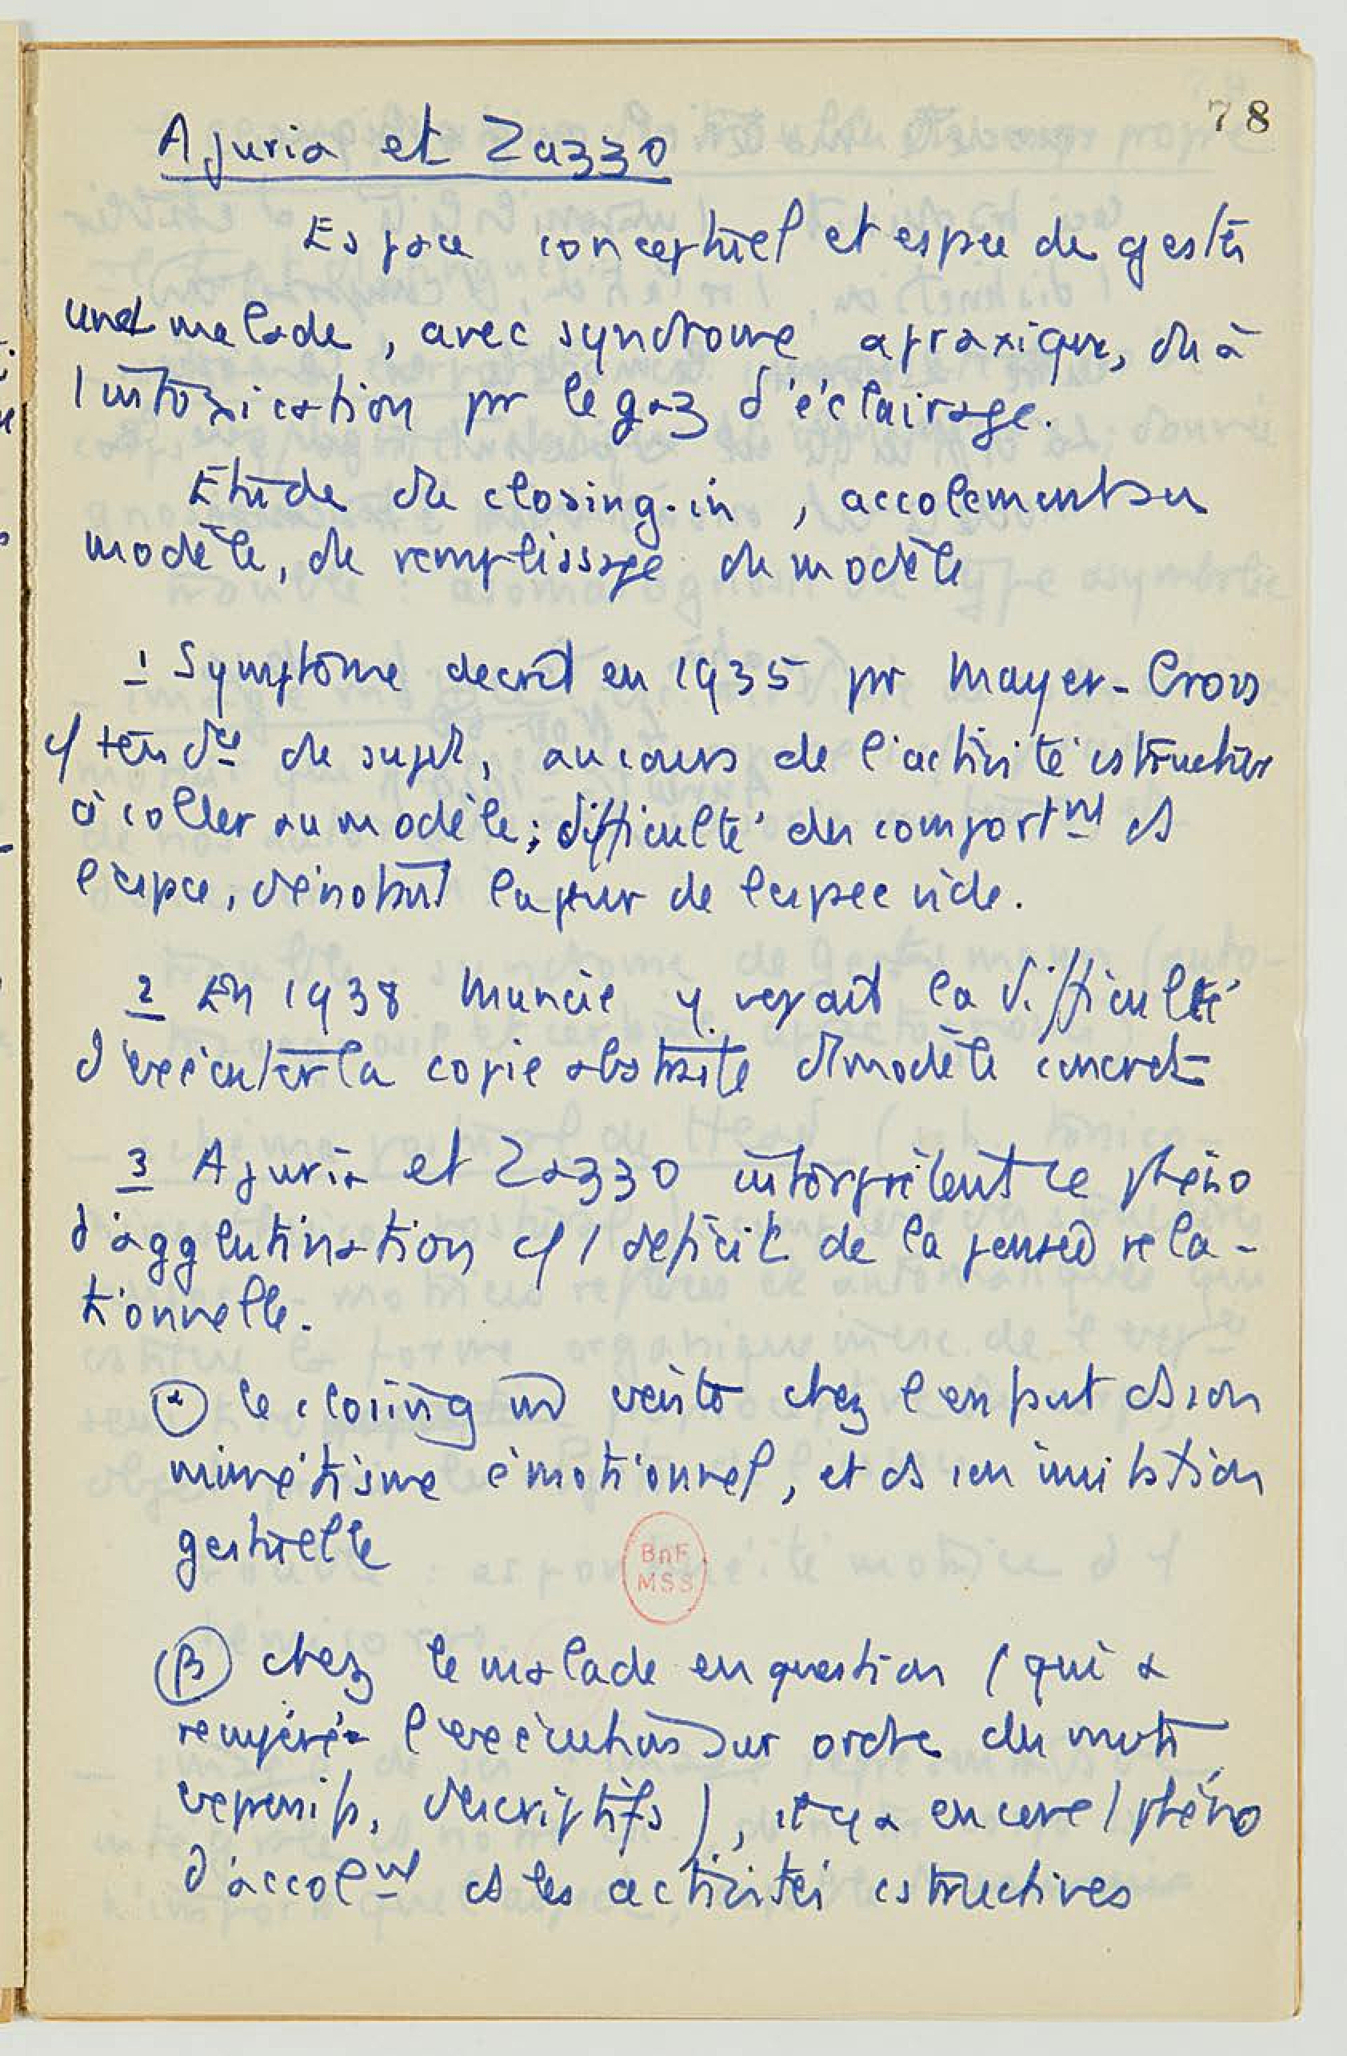 78
Ajuria et Zazzo
Espace conceptuel et espace des gestes
malade, avec syndrome apraxique, du à
l intoxication pr le gaz d'éclairage.
Etude du closing-in, accolement au
modèle, du remplissage du modèle
1 Symptôme décrit en 1935 pr Mayer-Gross
cf tendce du sujet, au cours de l'activité cstructive
à coller au modèle; difficulté du comportmt ds
l'espce, dénotant la peur de l'espce vide.
2 En 1938 Muncie y voyait la difficulté
d'exécuter la copie abstraite d modèle concret
3 Ajuria et Zazzo interprètent ce phéno
d'agglutination cf 1 déficit de la pensée rela-
tionnelle.
α le closing in existe chez l'enfant ds son
mimétisme émotionnel, et ds son imitation
gestuelle
BnF
MSS
β chez le malade en question (qui a
récupéré l'exécution sur ordre des mvts
expressifs, descriptifs), il y a encore 1 phéno
d'accolmt ds les activités cstructives